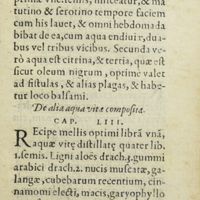 tutino & serotino tempore faciem
cum his lauet, & omni hebdomada
bibat de ea, cum aqua endiuię, dua-
bus vel tribus vicibus. Secunda ve-
rò aqua est citrina, & tertia, quæ est
sicut oleum nigrum, optimè valet
ad fistulas, & alias plagas, & habe-
tur loco balsami.
De alia aqua vitæ composita.
CAP. LIII.
REcipe mellis optimi librā vnā,
aquæ vitę distillatę quater lib.
1. semis. Ligni aloës drach. 3. gummi
arabici drach. 2. nucis muscatæ, ga-
langæ, cubebarum recentium, cin-
namomi electi, macis, garyophyllo